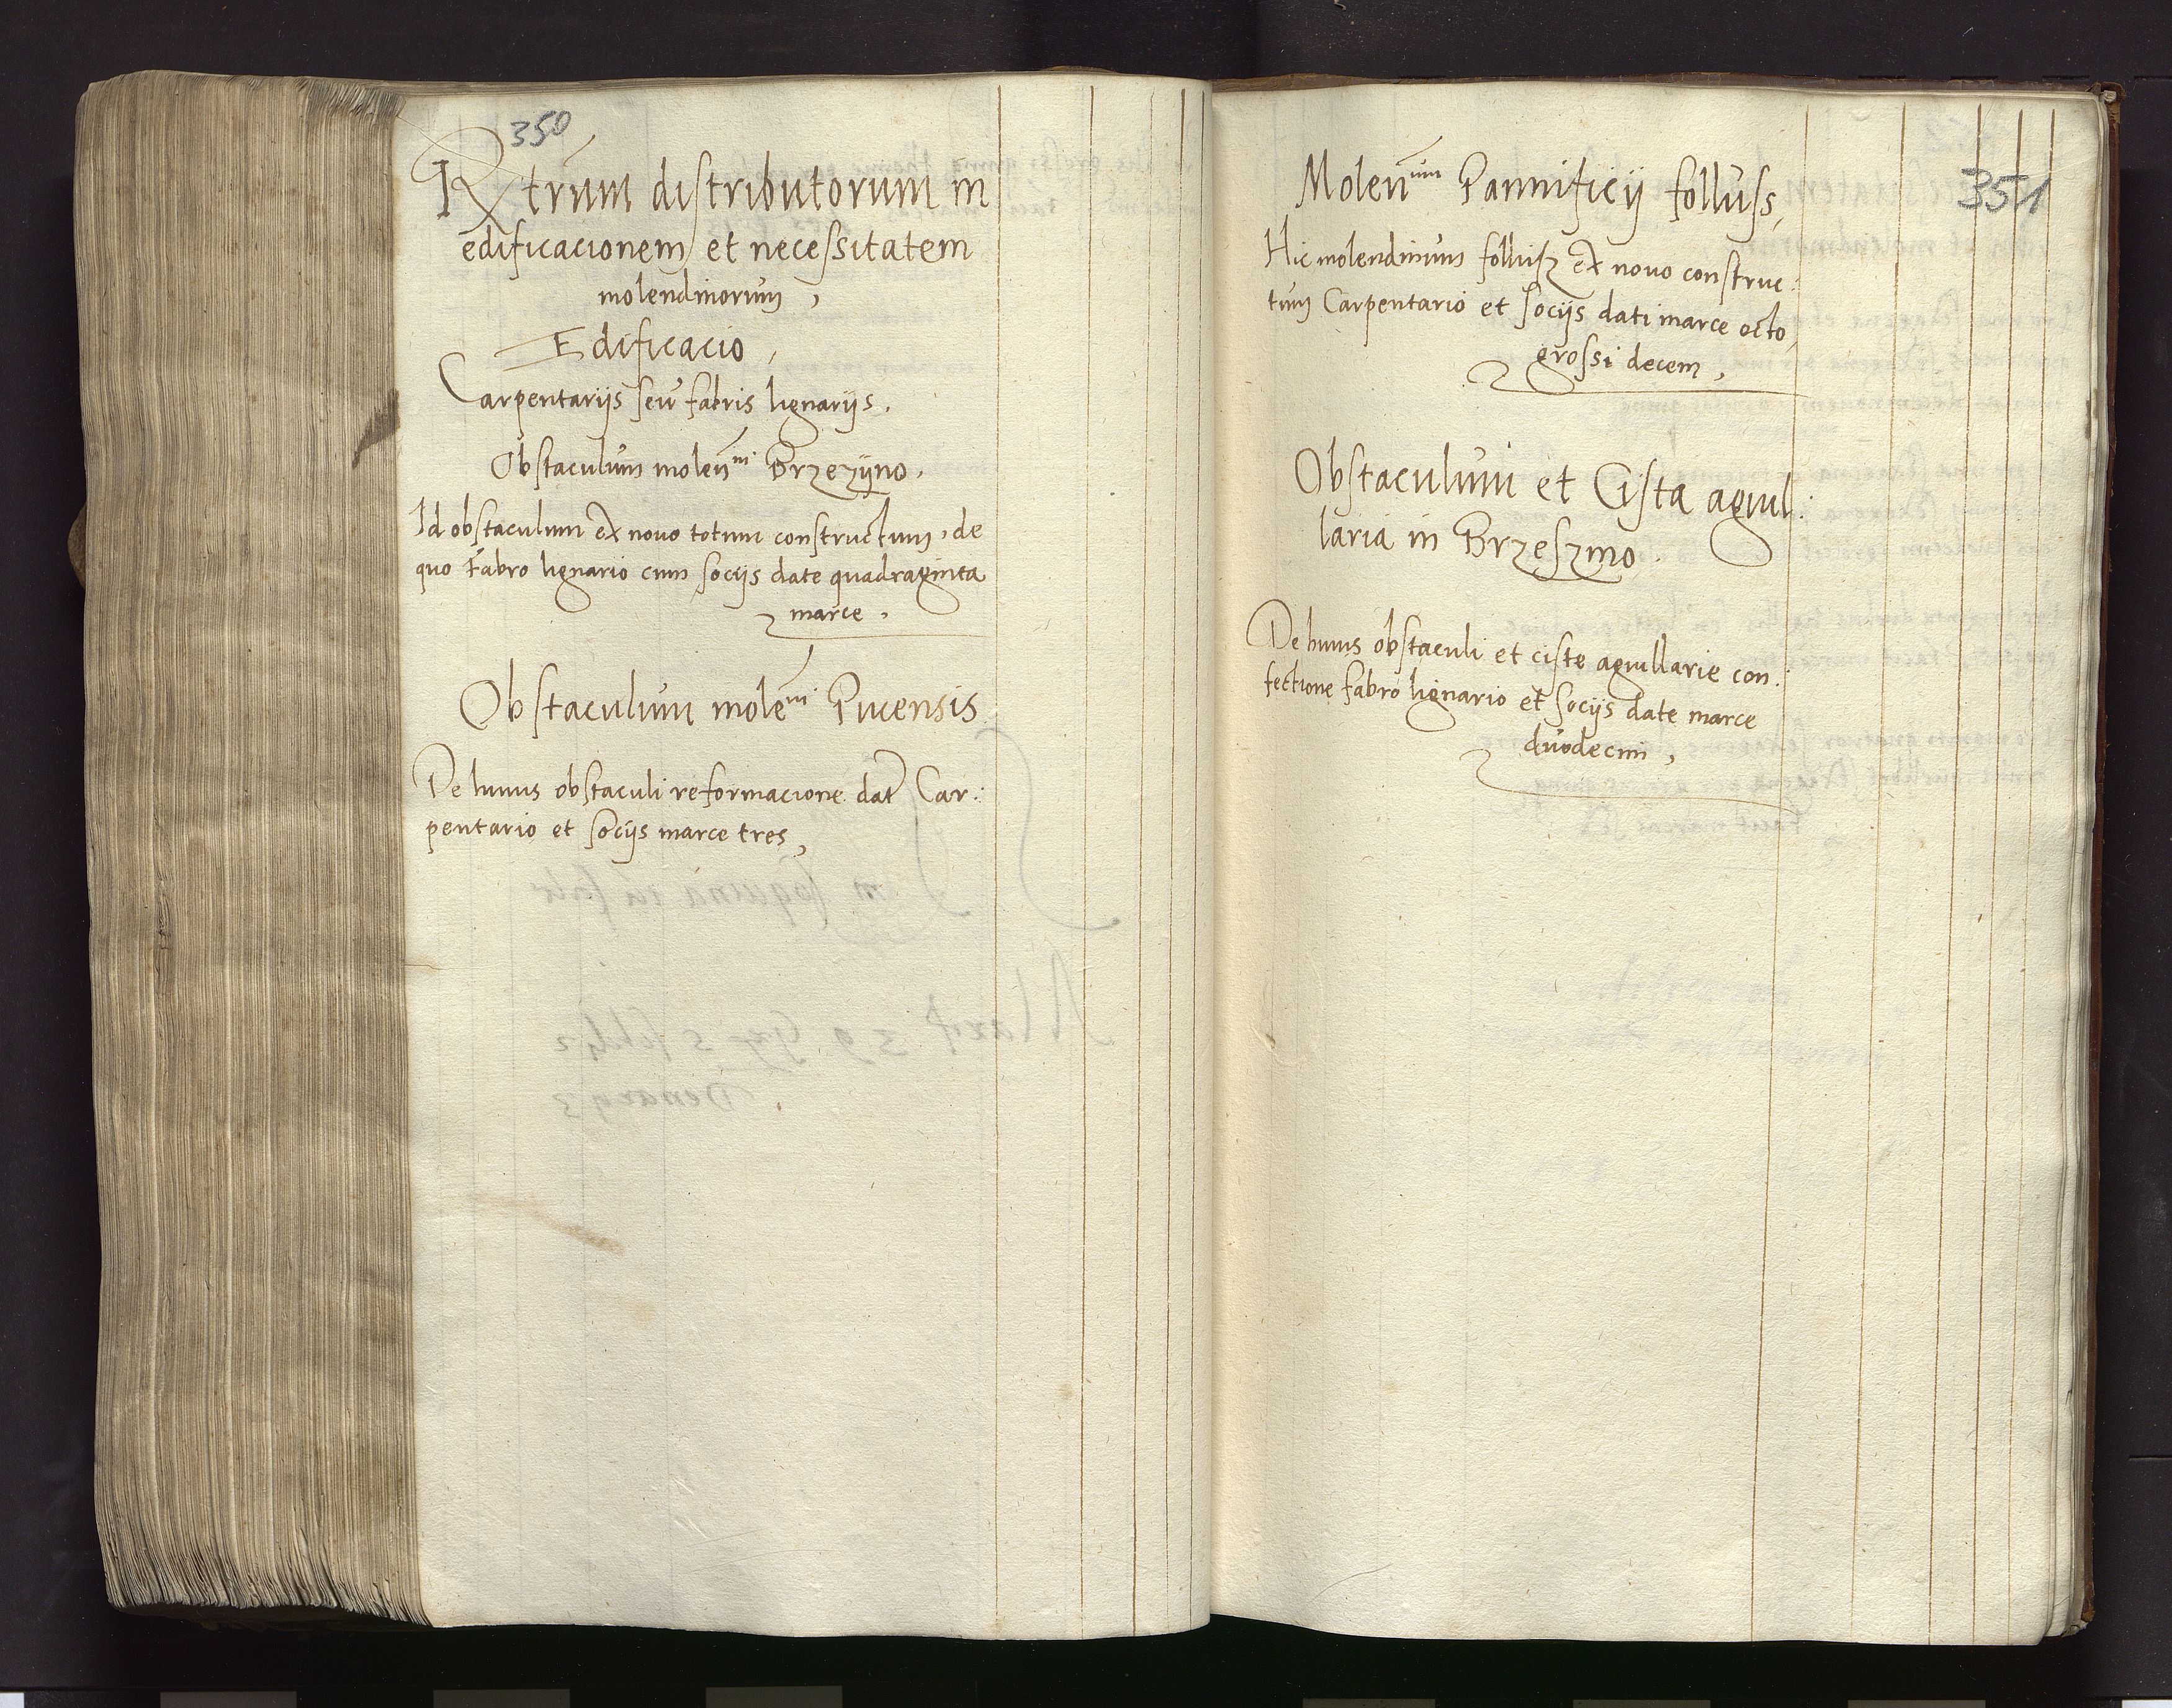 350
Rtrum distributorum in
edificacionem et necessitatem
molendinorum,
Edificacio,
Carpentarijs seu fabris lignarijs.
Obstaculum molenni Brzezÿno.
Id obstaculum ex novo totum constructum, de
quo Fabro lignario cum socijs date quadraginta
marce.
Obstaculum moleni Pucensis
De huius obstaculi reformacione dat Car:
pentario et socijs marce tres,
351
Molennum Pannificij folluss,
Hic molendinum ex novo construc:
tum Carpentario et socijs dati marce octo,
grossi decem,
Obstaculum et Cista agvil:
laria in Brzeszmo.
De huius obstaculi et ciste agvillarie con:
fectione fabro lignario et socijs date marce
duodecim,